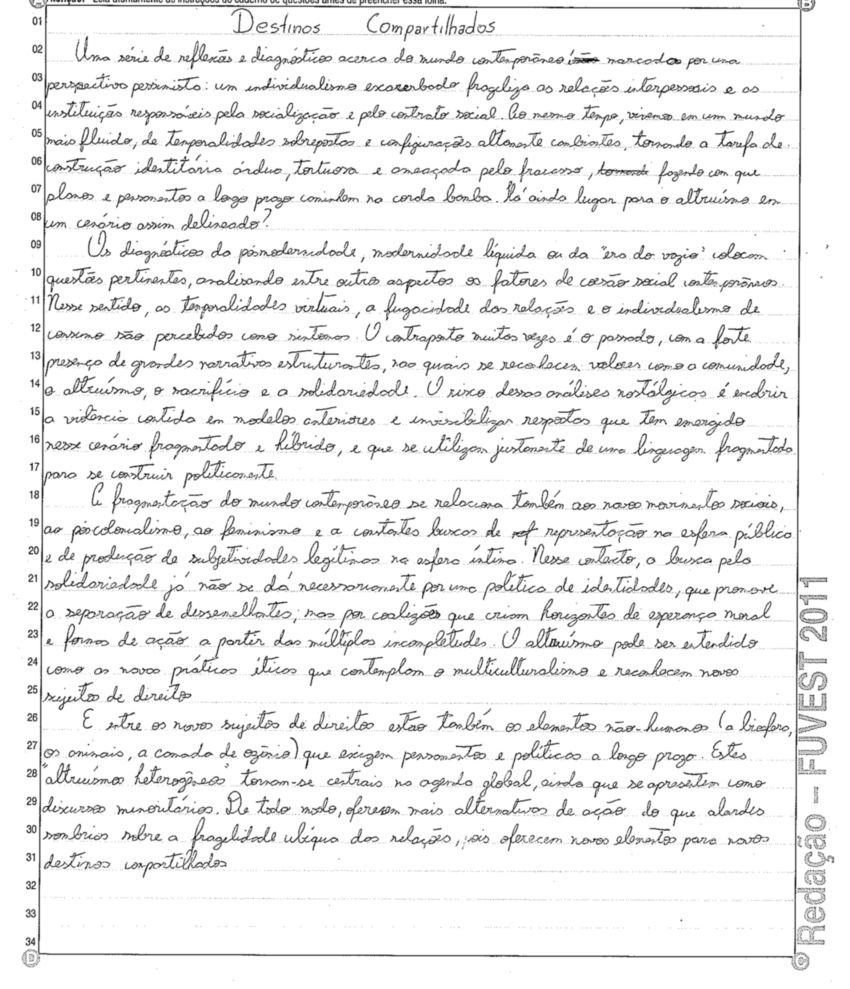 01 Destinos Compartilhados
02 Uma série de reflexões e diagnósticos acerca do mundo contemporâneo marcados por uma
03 perspectiva pessimista: um individualismo exacerbado fragiliza as relações interpessoais e as
04 instituições responsáveis pela socialização e pelo contrato social. Ao mesmo tempo, vivemos em um mundo
05 mais fluido, de temporalidades sobrepostas e configurações altamente cambiantes, tornando a tarefa de
06 construção identitária árdua, tortuosa e ameaçada pelo fracasso, fazendo com que
07 planos e pensamentos a longo prazo caminhem na corda bamba. Há ainda lugar para o altruísmo em
08 um cenário assim delineado?
09 Os diagnósticos da pósmodernidade, modernidade líquida ou da "era do vazio" colocam
10 questões pertinentes, analisando entre outros aspectos os fatores de coesão social contemporâneos.
11 Nesse sentido, as temporalidades virtuais, a fugacidade das relações e o individualismo de
12 consumo são percebidos como sintomas. O contraponto muitas vezes é o passado, com a forte
13 presença de grandes narrativas estruturantes, nas quais se reconhecem valores como a comunidade,
14 o altruísmo, o sacrifício e a solidariedade. O risco dessas análises nostálgicas é encobrir
15 a violência contida em modelos anteriores e invisibilizar respostas que tem emergido
16 nesse cenário fragmentado e híbrido, e que se utilizam justamente de uma linguagem fragmentada
17 para se construir politicamente.
18 A fragmentação do mundo contemporâneo se relaciona também aos novos movimentos sociais,
19 ao póscolonialismo, ao feminismo e a constantes buscas de representação na esfera pública
20 e de produção de subjetividades legítimas na esfera íntima. Nesse contexto, a busca pela
21 solidariedade já não se dá necessariamente por uma política de identidades, que promove
22 a separação de dessemelhantes; mas por coalizões que criam horizontes de esperança moral
23 e formas de ação a partir das múltiplas incompletudes. O altruísmo pode ser entendido
24 como as novas práticas éticas que contemplam o multiculturalismo e reconhecem novos
25 sujeitos de direito
26 E entre os novos sujeitos de direitos estão também os elementos não-humanos (a biosfera,
27 os animais, a camada de ozônio) que exigem pensamentos e políticas a longo prazo. Estes
28 "altruísmos heterogêneos" tornam-se centrais na agenda global, ainda que se apresentem como
29 discursos minoritários. De todo modo, oferecem mais alternativas de ação do que alardes
30 sombrios sobre a fragilidade ubíqua das relações, pois oferecem novos elementos para novos
31 destinos compartilhados
32
33
34
Redação – FUVEST 2011